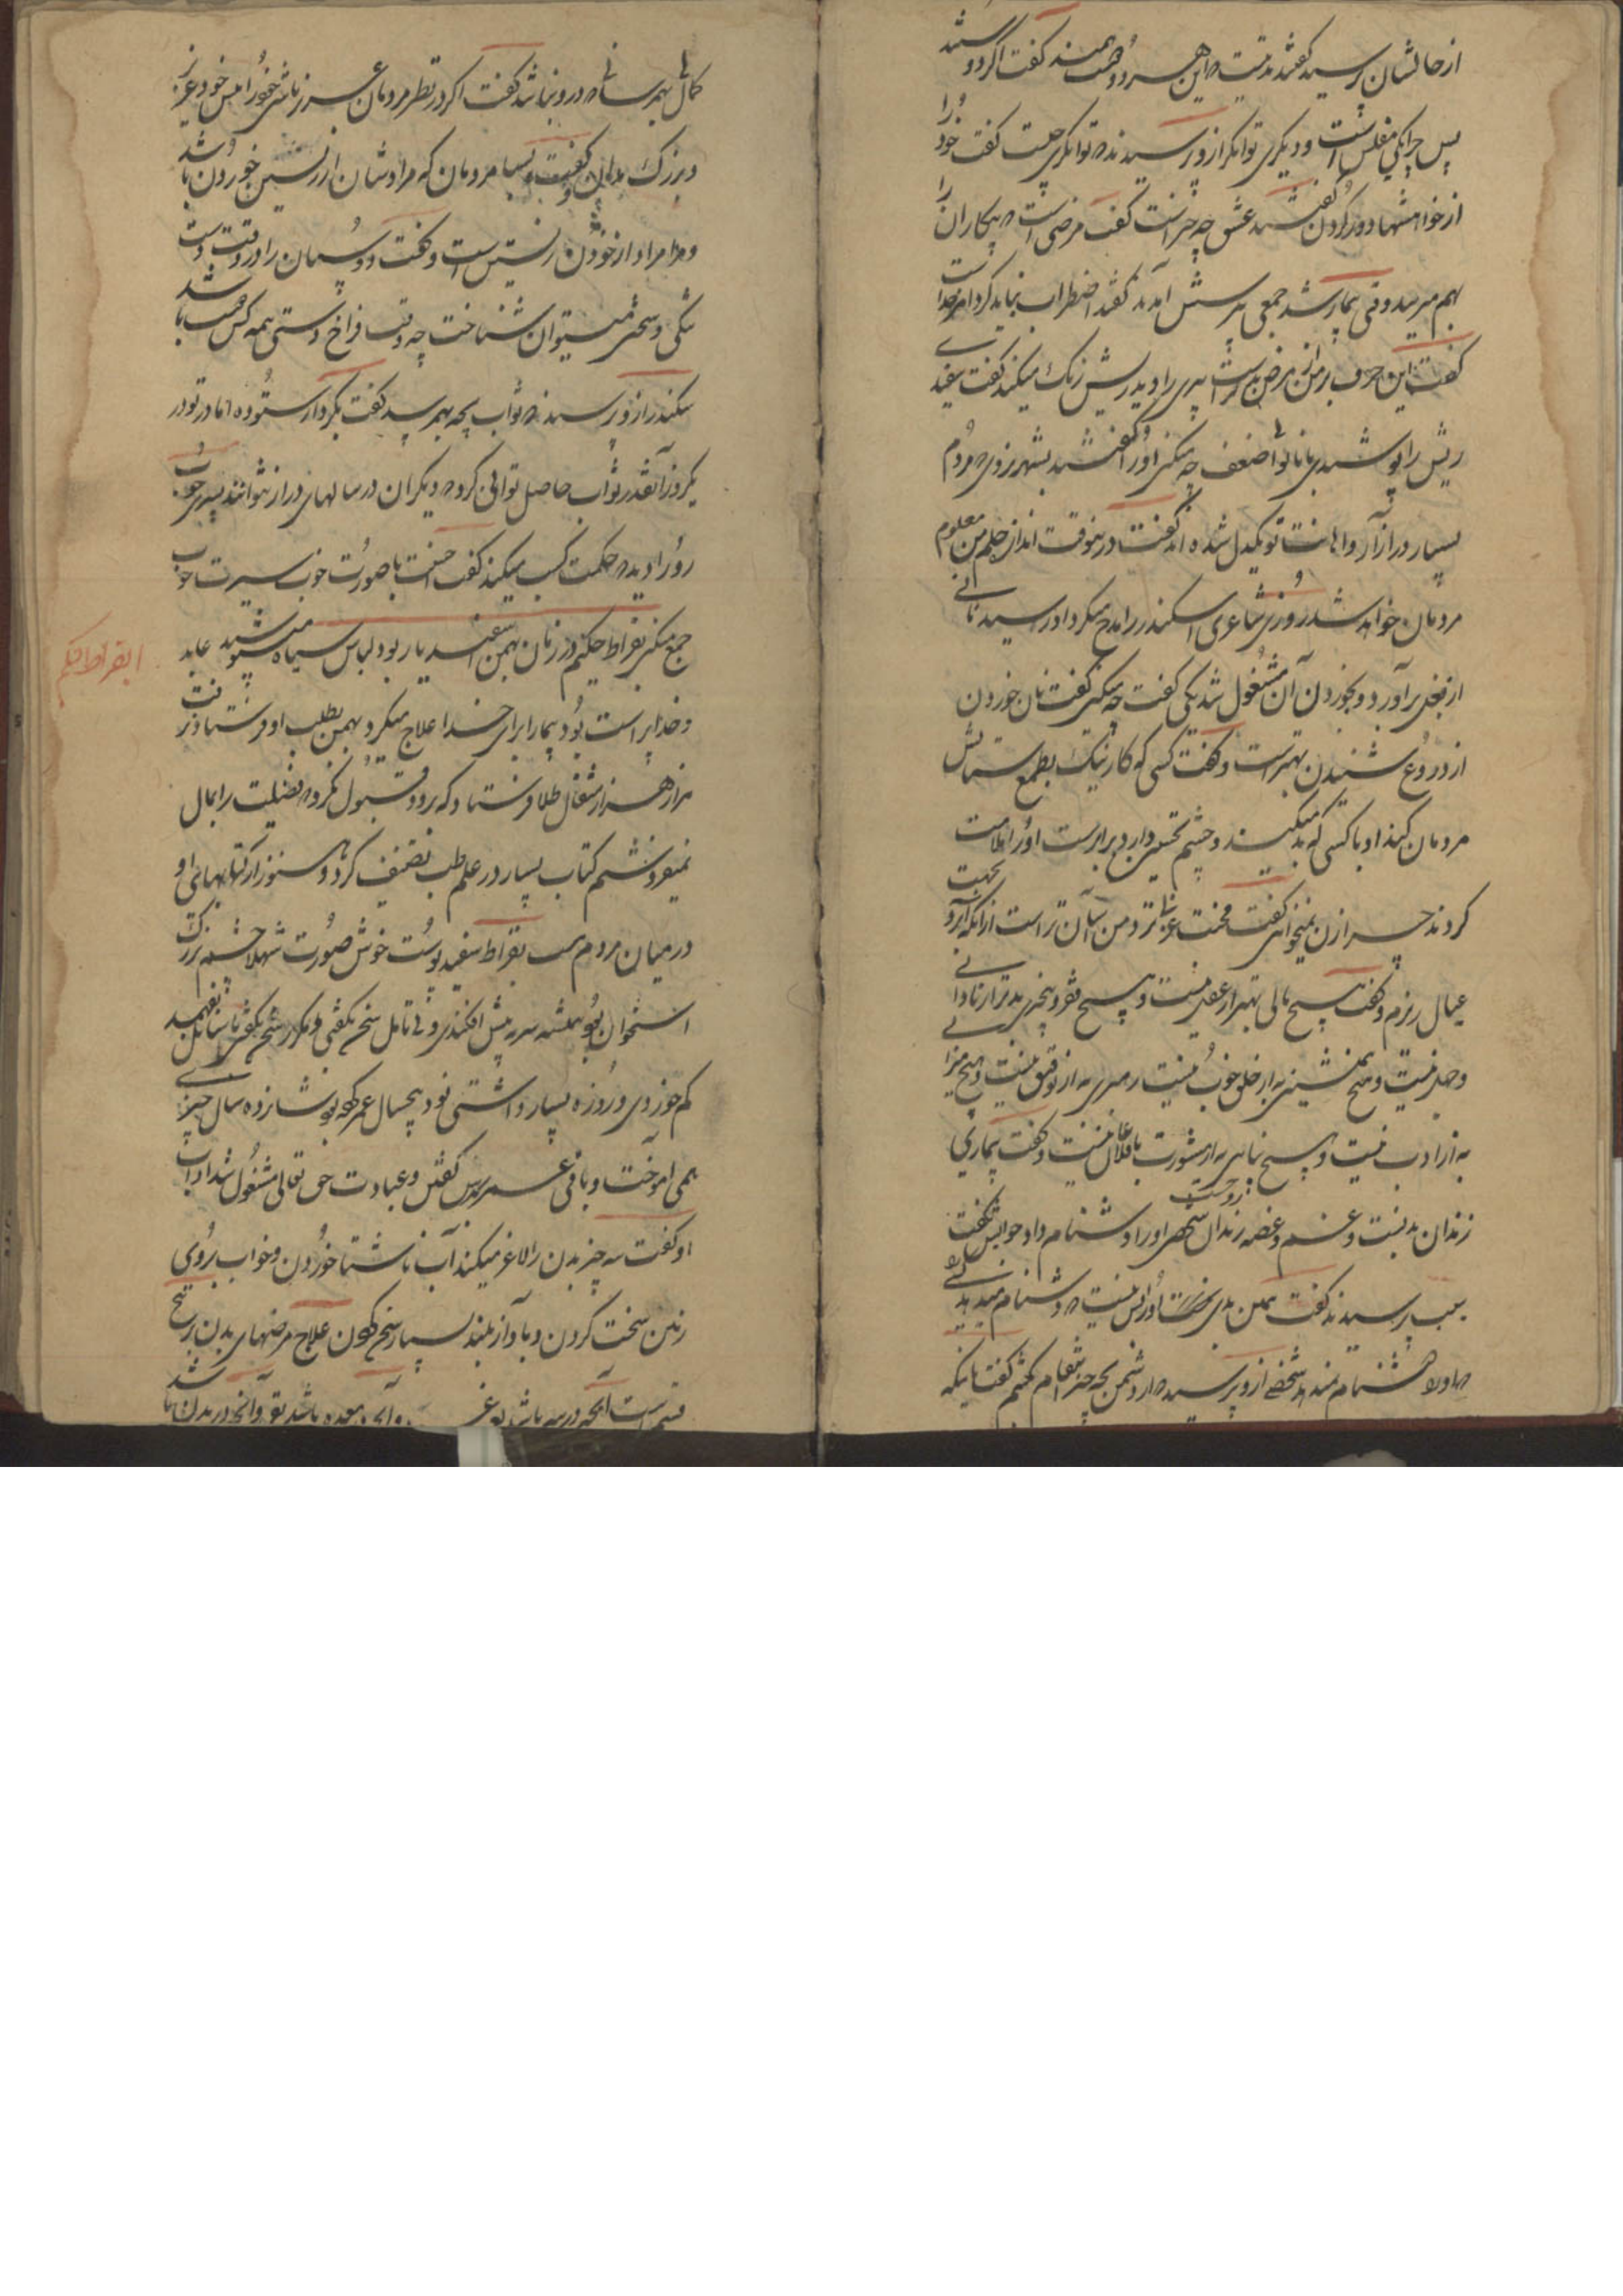 از حالشان پرسید گفتند مدتیست که این هر دو دوستند گفت اگر دوستند
پس چرا یکی مفلس است و دیگری توانگر از و پرسیدند که توانگری چیست گفت خود را
از خواهشها دور کردن گفتند عشق چه چیز است گفت مرضی است که بیکاران را
بهم میرسد وقتی بیمار شد جمعی بپرسش آمدند گفتند اضطراب نباید کرد امر خداست
گفت این حرف بر من از مرض بدتر است پیری را دید ریش رنگ میکند گفت سفیدی
ریش را پوشیدی با ناتوانی و ضعف چه میکنی او را گفتند بشهر نروی که مردم
بسیار در آزار و اهانت تو یکدل شده اند گفت درینوقت اندازه حلم من معلوم
مردمان خواهد شد روزی شاعری اسکندر را مدح میکرد او در رسید نانی
از بغل برآورد و بخوردن آن مشغول شد یکی گفت چه میکنی گفت نان خوردن
از دروغ شنیدن بهتر است و گفت کسی که کار نیک بطمع ستایش
مردمان کند او با کسی که بد میکند و چشم تحسین دارد برابر است او را ملامت
کردند چرا زن نمیخواهی گفت محنت عزب بودن من آسان تر است از آنکه آبرو بجهت
عیال ریزم و گفت هیچ مالی بهتر از عقل نیست و هیچ فقر و چیزی بدتر از نادانی
و جهل نیست و هیچ همنشینی به از خلق خوب نیست رهبری به از توفیق نیست و هیچ میراثی
به از ادب نیست و هیچ پناهی به از مشورت با عاقلان نیست و گفت بیماری
زندان بدنست و غم و غصه زندان روحست شخصی او را دشنام داد جوابش نگفت
سبب پرسیدند گفت همین بدی او را بس نیست که دشنام میدهد کسی
که او را دشنام نمیدهد شخصی از و پرسید که از دشمن بچه چیز انتقام کشم گفت باینکه
کمالی بهم رسانی که در و نباشد گفت اگر در نظر مردمان عزیز نباشی خود را پیش خود عزیز
و بزرگ مدان و گفت بسیار مردمان که مرادشان از زیستن خوردن باشد
و مرا مراد از خوردن زیستن است و گفت دوستان را در وقت
تنگی و سختی میتوان شناخت چه وقت فراخ دستی همه کس محب باشد
سکندر از و پرسید که ثواب بچه بهم رسد گفت بکردار ستوده اما تو در
یکروز آنقدر ثواب حاصل توانی کرد که دیگران در سالهای دراز نتوانند پسری خوب
رو را دید که حکمت کسب میکند گفت احسنت با صورت خوب سیرت خوب
جمع میکنی بقراط حکیم در زمان بهمن اسفندیار بود لباس سیاه میپوشید عابد
و خداپرست بود بیمار را برای خدا علاج میکرد بهمن بطلب او فرستاد نرفت
هزار هزار مثقال طلا فرستاد که رود قبول نکرد که فضیلت را بمال
نمیفروشم کتاب بسیار در علم طب تصنیف کرد و هنوز از کتابهای او
در میان مردم هست بقراط سفید پوست خوش صورت شهلا چشم بزرگ
استخوان بود همیشه سر به پیش افکندی و بی تامل سخن نگفتی و مکرر سخن بگفتی تا سائل بفهمد
کم خوردی و روزه بسیار داشتی نود و پنجسال عمر کرده بود شانزده سال چیزی
می آموخت و باقی عمر درس گفتن و عبادت حق تعالی مشغول شد آداب
او گفت سه چیز بدن را لاغر میکند آب ناشتا خوردن و خواب بروی
زمین سخت کردن و با آواز بلند بسیار سخن کردن علاج مرضهای بدن بر پنج
قسم است آنچه در سر باشد بغرغره و آنچه در معده باشد بقی و آنچه در بدن باشد
بقراط حکیم